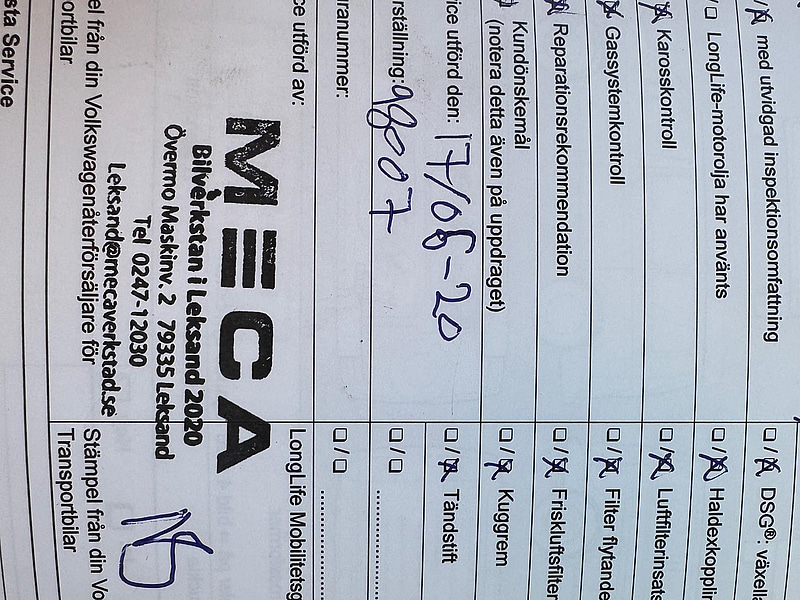 /☒ med utvidgad inspektionsomfattning
/☐ LongLife-motorolja har använts
☒ Karosskontroll
☒ Gassystemkontroll
☒ Reparationsrekommendation
Kundönskemål
(notera detta även på uppdraget)
ice utförd den: 17/08-20
rställning: 98007
ranummer:
ce utförd av:
MECA
Bilverkstan i Leksand 2020
Övermo Maskinv. 2 79335 Leksand
Tel 0247-12030
Leksand@mecaverkstad.se
el från din Volkswagenåterförsäljare för
portbilar
sta Service
☐/☒ DSG®: växella
☐/☒ Haldexkopplin
☐/☒ Luftfilterinsats
☐/☒ Filter flytande
☐/☒ Friskluftsfilter
☐/☒ Kuggrem
☐/☒ Tändstift
☐/☐ ....................
☐/☐ ....................
LongLife Mobilitetsg
Stämpel från din Vo
Transportbilar